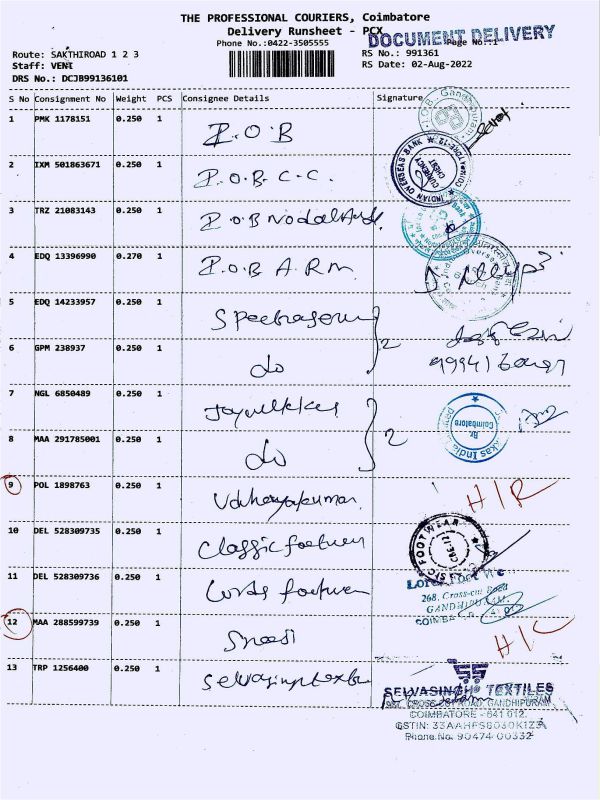 THE PROFESSIONAL COURIERS, Coimbatore
Delivery Runsheet - PCX
DOCUMENT DELIVERY
Phone No.:0422-3505555
Page No.:1
Route: SAKTHIROAD 1 2 3
RS No.: 991361
Staff: VENI
RS Date: 02-Aug-2022
DRS No.: DCJB99136101
S No Consignment No Weight PCS Consignee Details Signature
1 PMK 1178151 0.250 1 I.O.B
2 IXM 501863671 0.250 1 I.O.B.C.C.
INDIAN OVERSEAS BANK
CURRENCY CHEST
3 TRZ 21083143 0.250 1 I.O.B Nodal Audi.
4 EDQ 13396990 0.270 1 I.O.B A.R.M
5 EDQ 14233957 0.250 1 } 2
6 GPM 238937 0.250 1 do
7 NGL 6850489 0.250 1 } 2
8 MAA 291785001 0.250 1 do
Coimbatore
9 POL 1898763 0.250 1 Udhayakumar H/R
10 DEL 528309735 0.250 1 Classic footwear
11 DEL 528309736 0.250 1 Lords footwear
268, Cross-cut Road
GANDHIPURAM
12 MAA 288599739 0.250 1 H/C
13 TRP 1256400 0.250 1
SELVASINGH TEXTILES
CROSS CUT ROAD, GANDHIPURAM
COIMBATORE - 641 012.
Phone No. 90474 00332